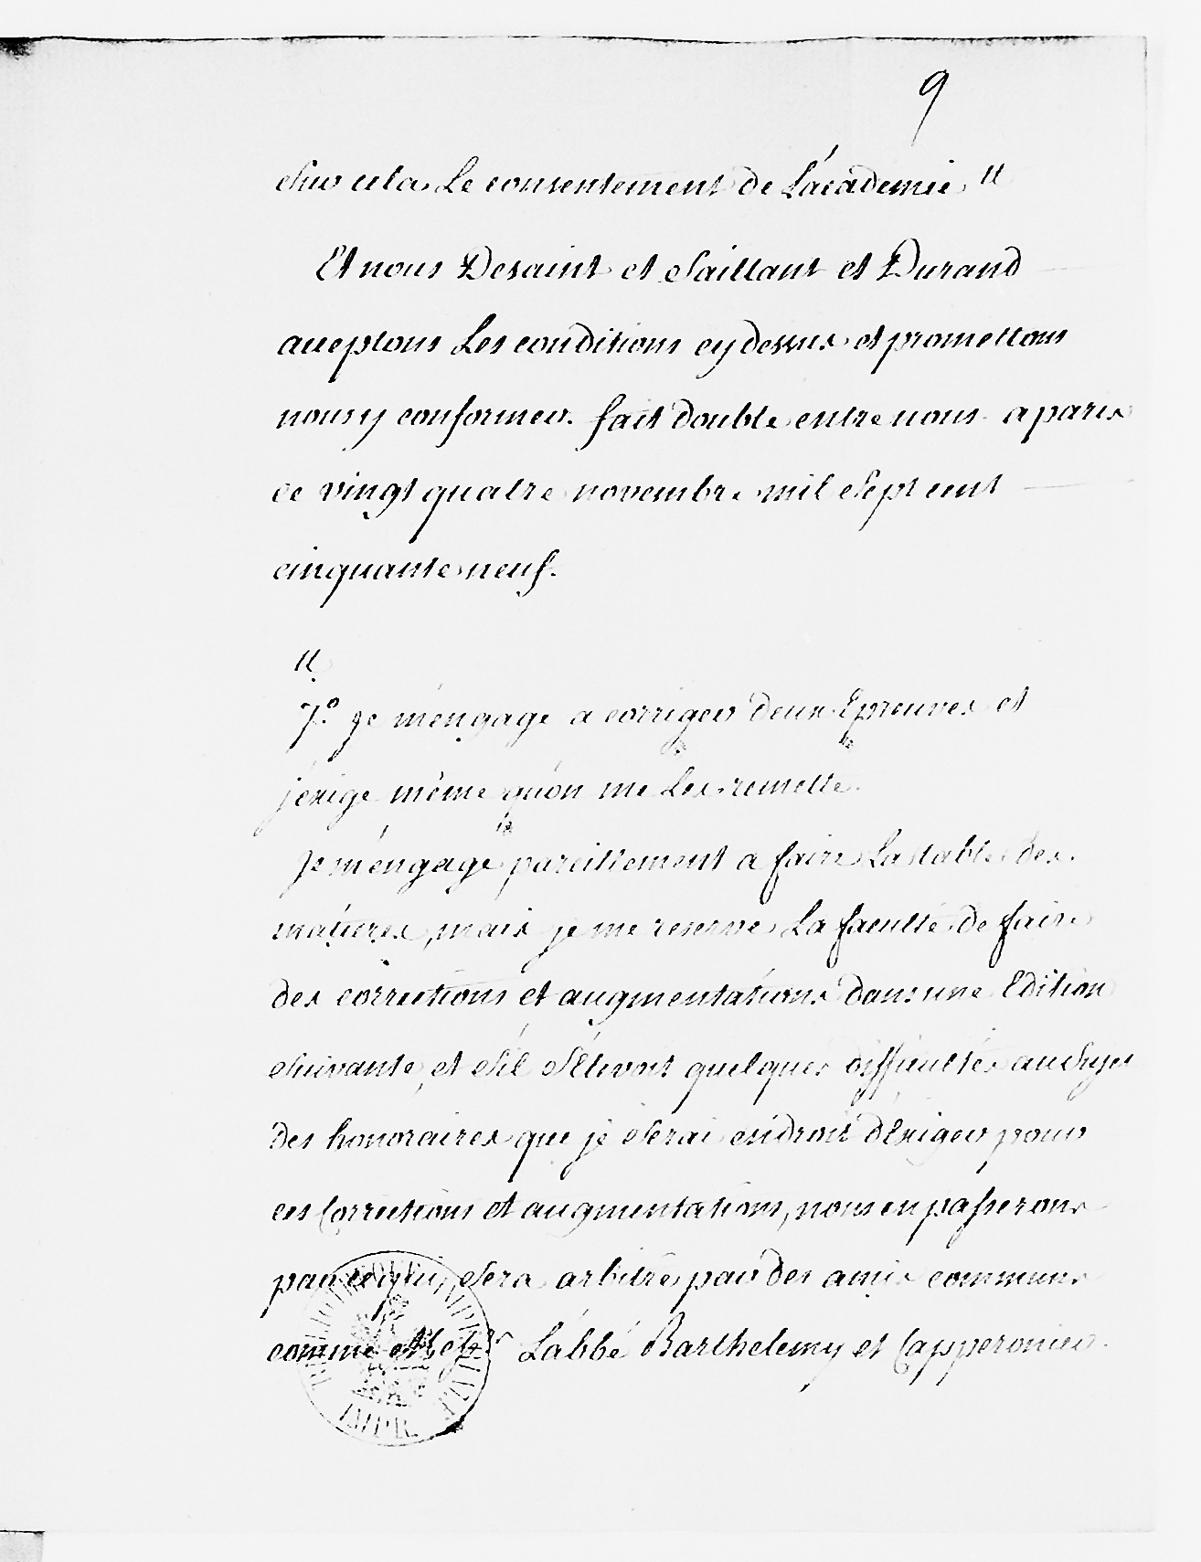 9
Sur cela Le consentement de L'académie "
Et nous Desaint et Saillant et Durand
acceptons Les conditions cy dessus et promettons
nous y conformer. fait double entre nous a paris
ce vingt quatre novembre mil Sept cent
cinquante neuf.
"
7.º Je m'engage a corriger deux Epreuves et
j'exige même qu'on me Les remette.
Je m'engage pareillement a faire La table des
matieres, mais je me reserve La faculté de faire
des corrections et augmentations dans une Edition
Suivante, et S'il S'élevoit quelques difficultés au Sujet
des honoraires que je Serai en droit d'Exiger pour
ces Corrections et augmentations, nous en passerons
par ce qui Sera arbitré par des amis communs
comme L'abbé Barthelemy et Capperonier.
BIBLIOTHEQUE IMPERIALE
IMPR.